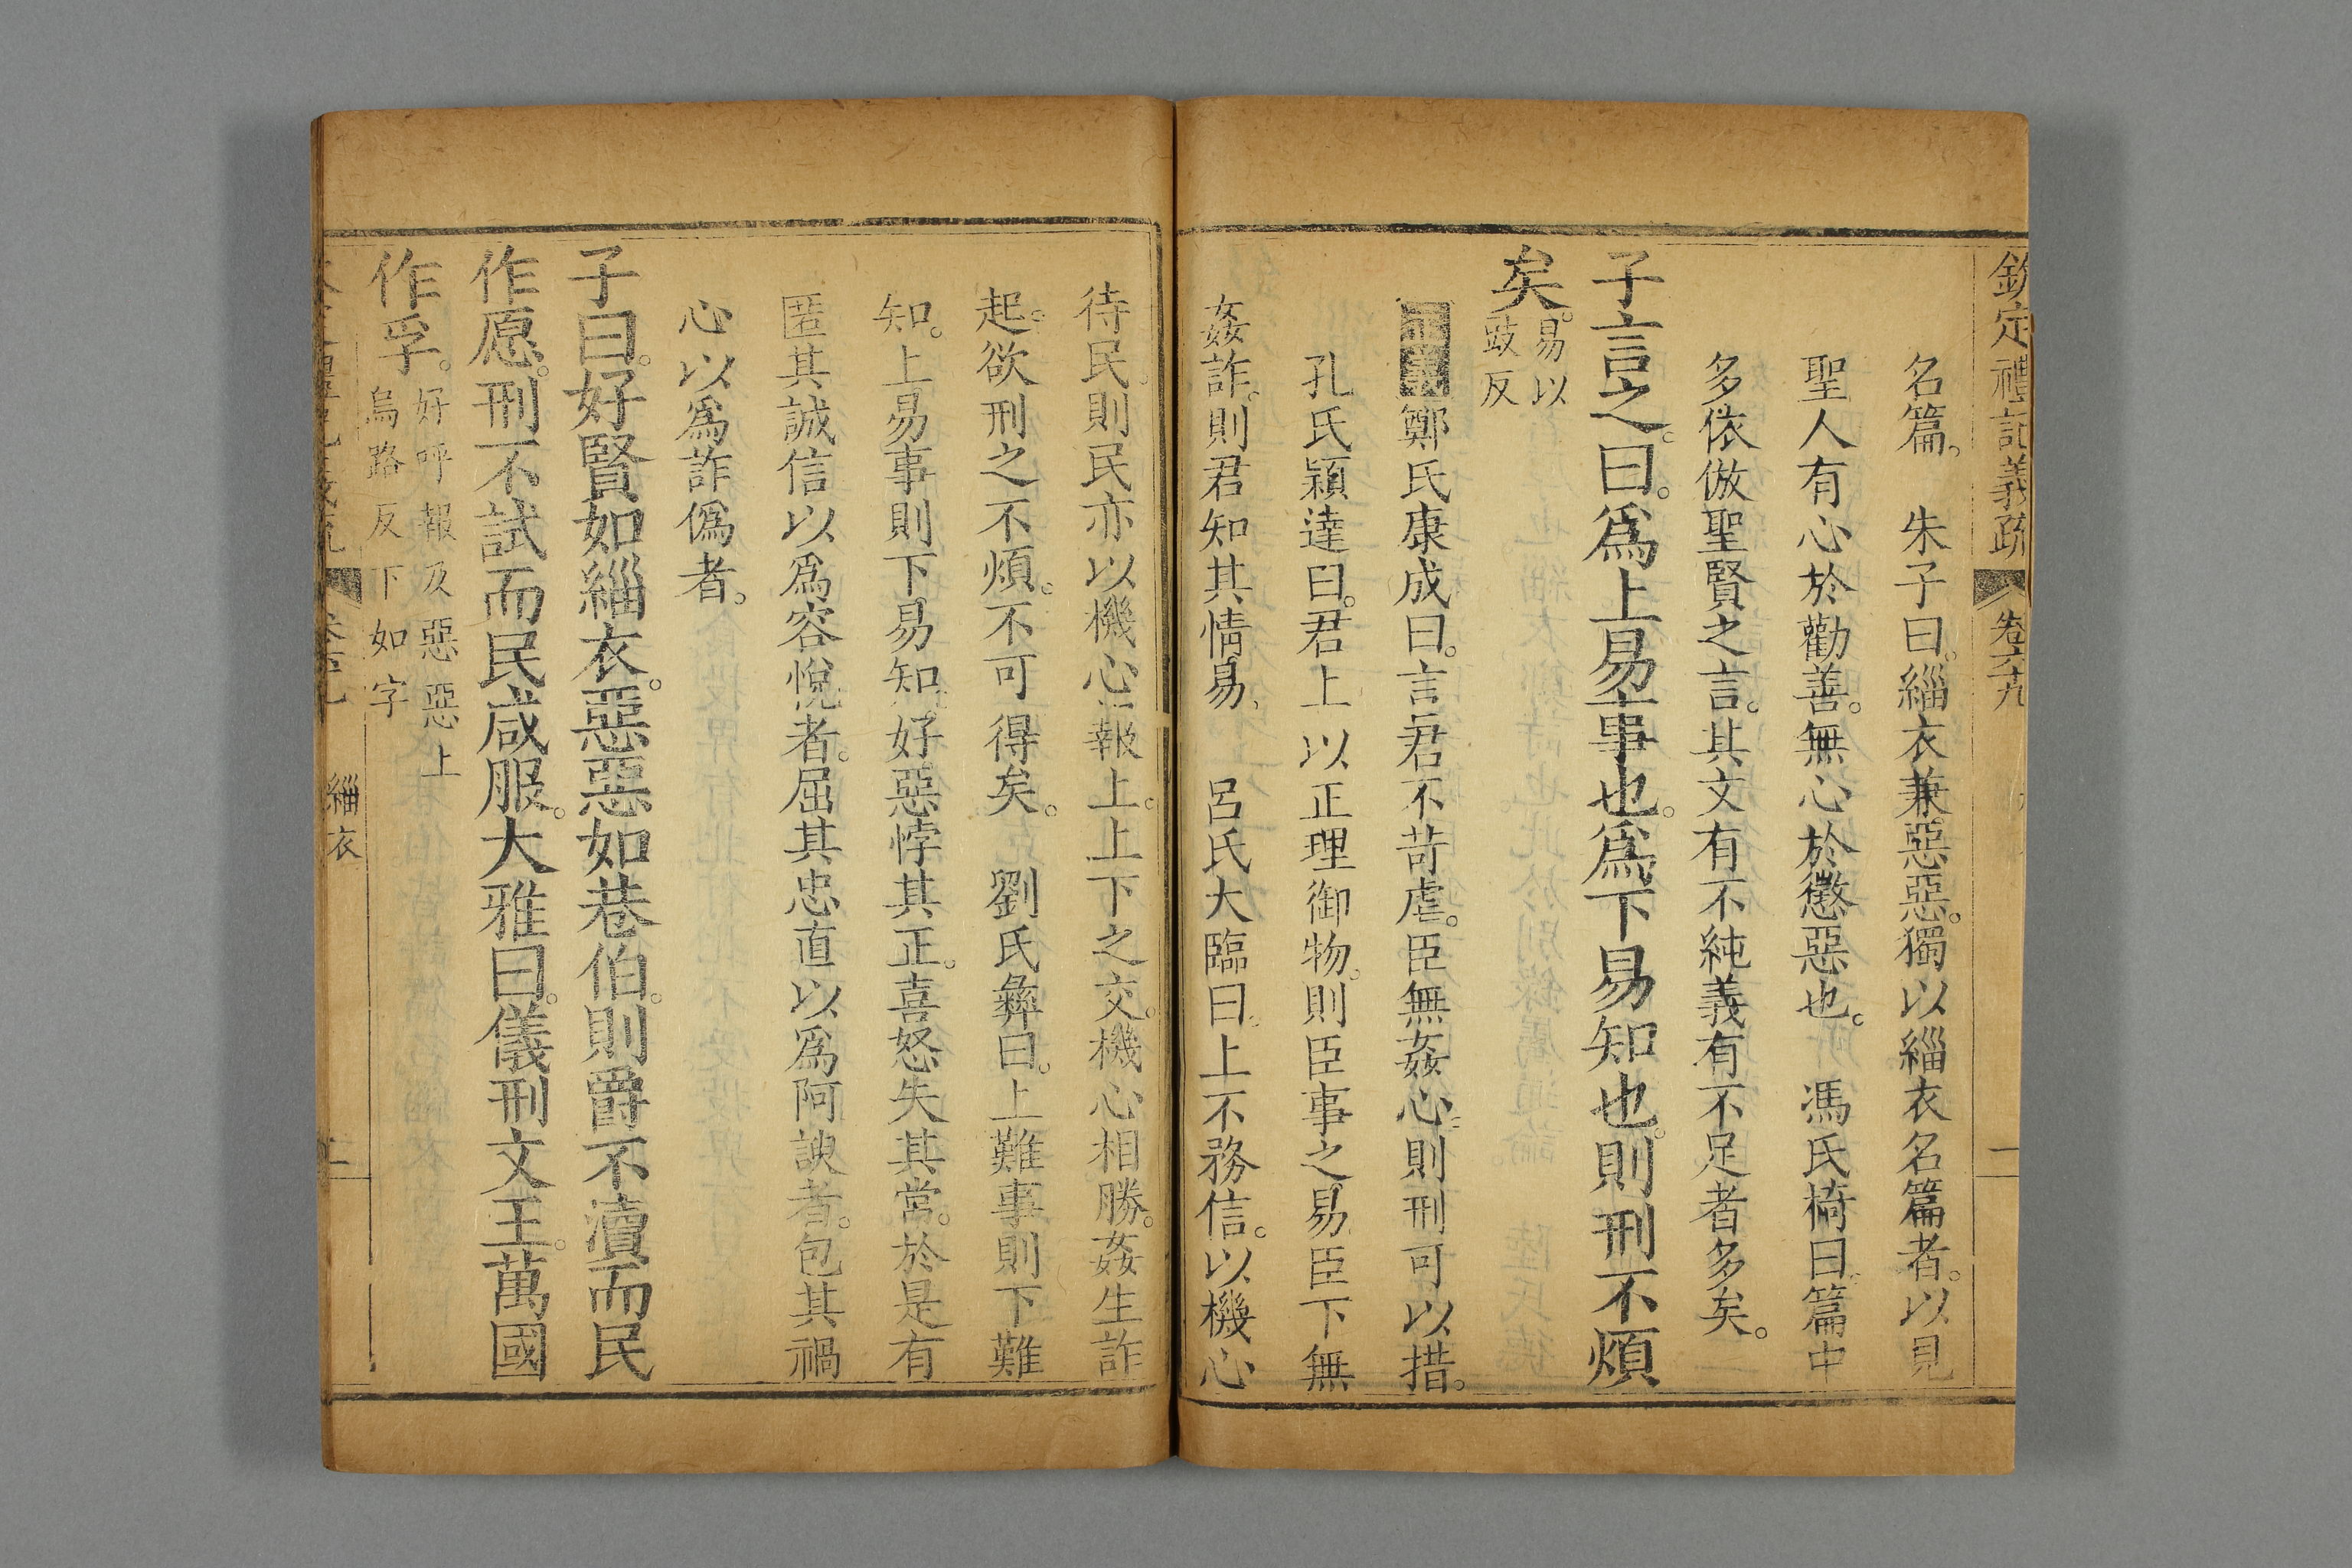 欽定禮記義疏 卷六十九 一
名篇。 朱子曰。緇衣兼惡惡。獨以緇衣名篇者。以見
聖人有心於勸善。無心於懲惡也。 馮氏椅曰。篇中
多依倣聖賢之言。其文有不純義有不足者多矣。
子言之。曰。爲上易事也。爲下易知也。則刑不煩
矣。易以
豉反
正義鄭氏康成曰。言君不苛虐。臣無姦心。則刑可以措。
孔氏穎達曰。君上以正理御物。則臣事之易。臣下無
姦詐。則君知其情易。 呂氏大臨曰。上不務信。以機心
待民。則民亦以機心報上。上下之交。機心相勝。姦生詐
起。欲刑之不煩。不可得矣。 劉氏彝曰。上難事則下難
知。上易事則下易知。好惡悖其正。喜怒失其常。於是有
匿其誠信以爲容悅者。屈其忠直以爲阿諛者。包其禍
心以爲詐僞者。
子曰。好賢如緇衣。惡惡如巷伯。則爵不瀆而民
作愿。刑不試而民咸服。大雅曰。儀刑文王。萬國
作孚。好呼報反惡惡上
烏路反下如字
緇衣